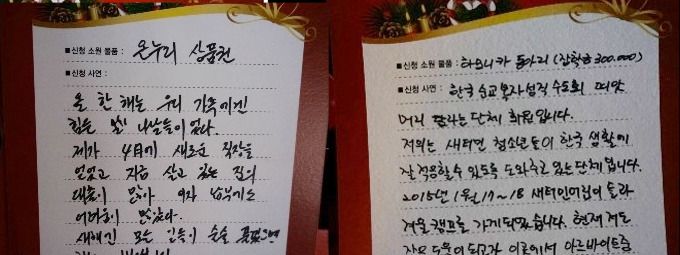 ■신청 소원 물품 : 온누리 상품권
■신청 사연 :
올 한 해는 우리 가족에겐
힘든 나날들이었다.
제가 4月에 새로운 직장을
얻었고 지금 살고 있는 집의
대출이 많아 이자 납부기소
어려움이 많았다.
새해엔 모든 일들이 술술
■신청 소원 물품 : 하모니카 동아리 (장학금 300,000)
■신청 사연 : 한국 순교복자성직 수도회
머리 단체 회원입니다.
저희는 새터민 청소년들이 한국 생활에
잘 적응할 수 있도록 도와주고 있는 단체입니다.
2015년 1월 17~18 새터민
겨울캠프를 가게되었습니다. 현재 저도
작은 도움이 되고자 아르바이트를